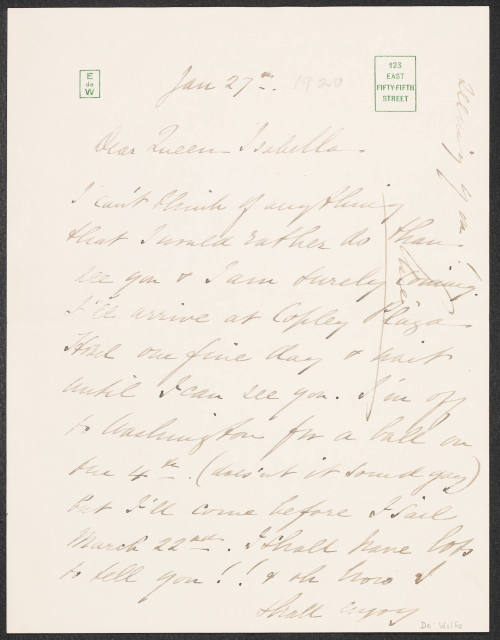 E
de
W
123
EAST
FIFTY-FIFTH
STREET
Jan 27th. 1920
Dear Queen Isabella.
I can't think of anything
that I would rather do than
see you & I am surely coming.
I'll arrive at Copley Plaza
Hotel one fine day & wait
until I can see you. I'm off
to Washington for a ball on
the 4th. (doesn't it sound gay)
but I'll come before I sail
March 22nd. I shall have lots
to tell you!! & oh how I
shall enjoy
seeing you
De Wolfe